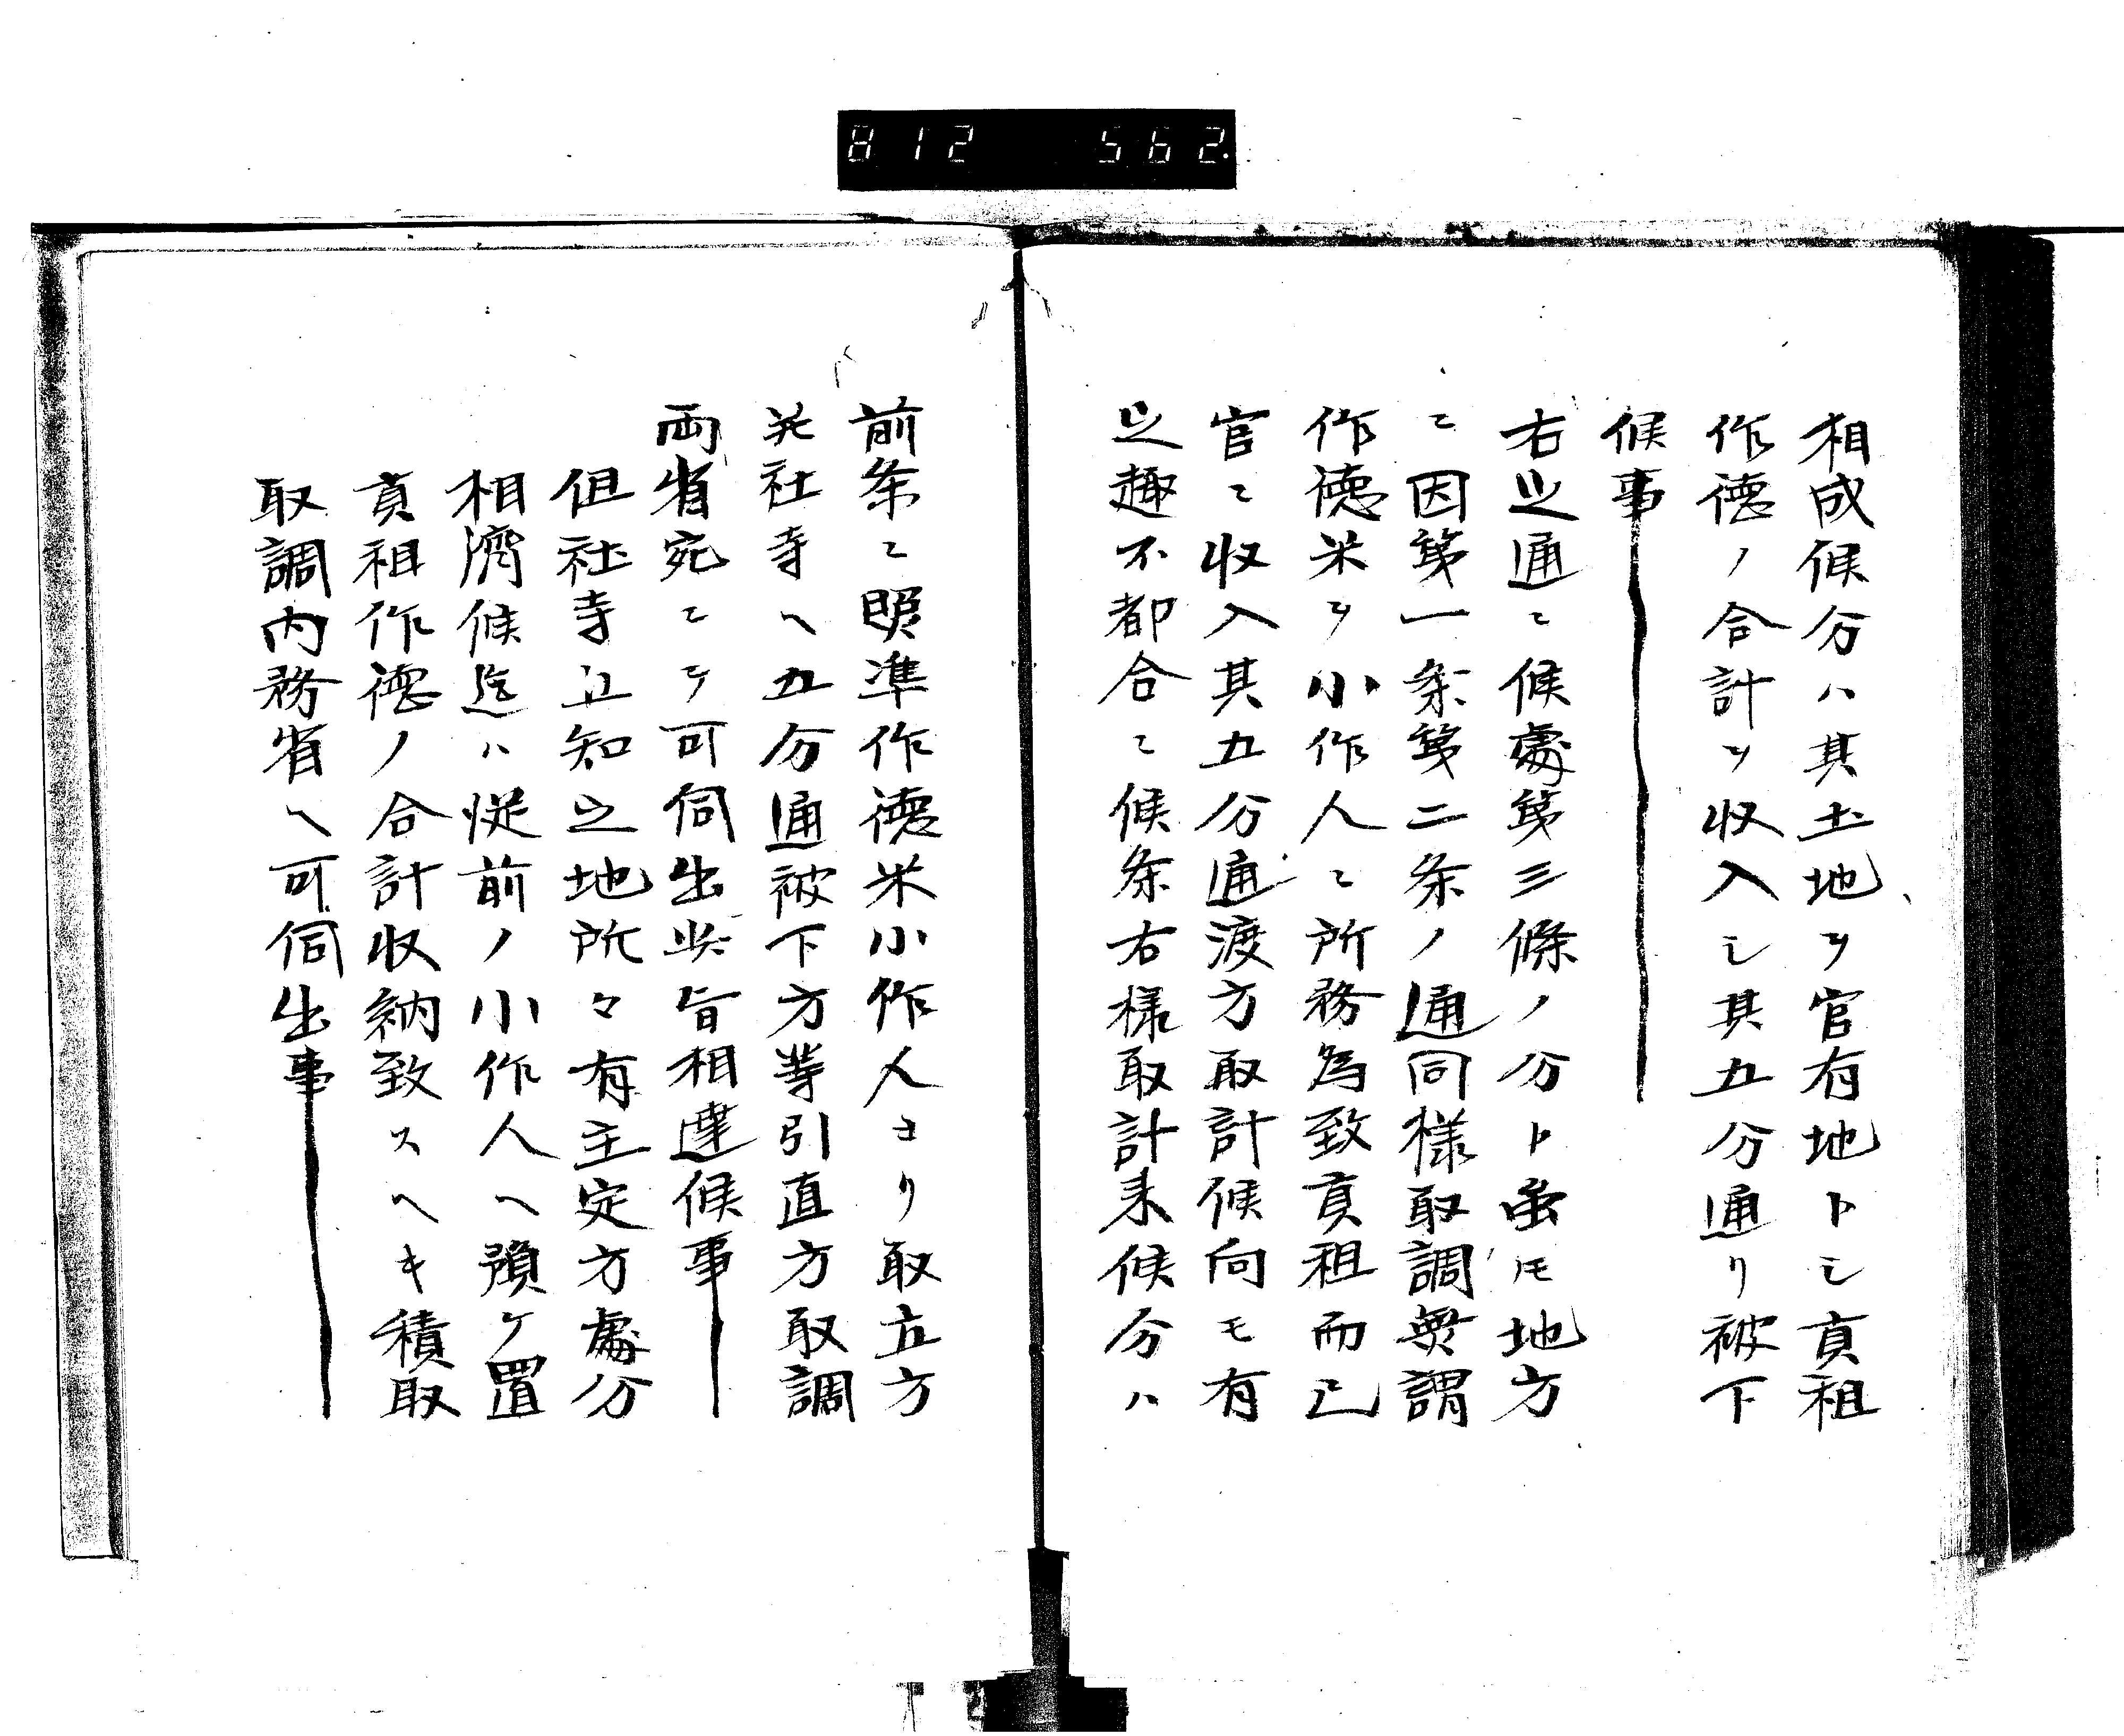 812 562.
相成候分ハ其土地ヲ官有地トシ貢租
作徳ノ合計ヲ収入シ其五分通リ被下
候事
右之通ニ候處第三條ノ分ト雖モ地方
ニ因第一条第二条ノ通同様取調無謂
作徳米ヲ小作人ニ所務為致貢租而已
官ニ収入其五分通渡方取計候向モ有
之趣不都合ニ候条右様取計来候分ハ
前条ニ照準作徳米小作人ヨリ取立方
并社寺ヘ五分通被下方等引直方取調
両省宛ニテ可伺出此旨相達候事
但社寺上知之地所々有主定方處分
相済候迄ハ従前ノ小作人ヘ預ケ置
貢租作徳ノ合計収納致スヘキ積取
取調内務省ヘ可伺出事